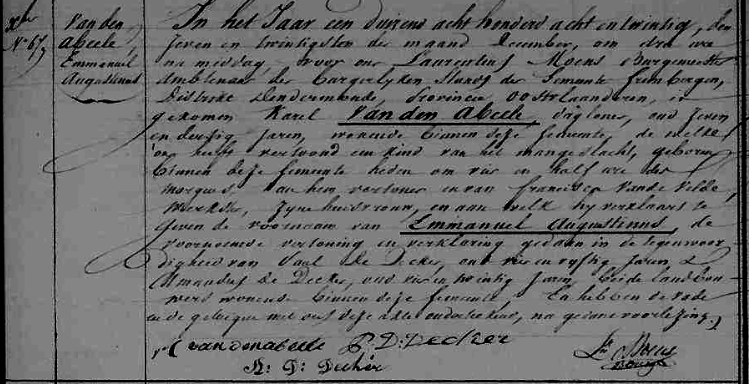 Xber
N° 67,
Van den
Abeele,
Emmanuel
Augustinus
In het Jaar een duizend acht honderd acht en twintig, den
zeven en twintigsten der maand December, om drie ure
na middag, voor ons Laurentius Moens Burgemeester
Ambtenaar des Burgerlyken Stands der Gemeente Grembergen,
District Dendermonde, Provincie Oostvlaanderen, is
gekomen Karel Van den Abeele, daglooner, oud zeven
en dertig Jaren, wonende binnen deze gemeente, de welke
ons heeft vertoond een kind van het mangeslacht, geboren
binnen deze gemeente heden om vier en half ure des
morgens, van hem vertoner en van Francisca Vande Velde
werkster, zyne huisvrouw, en aan welk hy verklaart te
geven de voornaam van Emmanuel Augustinus, de
voornoemde vertoning en verklaring gedaan in de tegenwoor
digheid van Paul De Decker, oud vier en vyftig Jaren &
Amandus De Decker, oud vier en twintig Jaren, beide landbou
wers wonende binnen deze gemeente. En hebben de vader
en de getuigen met ons deze akte onderteekend, na gedane voorlezing,
C vandenabeele P D: Decker
A: D: Decker
Ln Moens